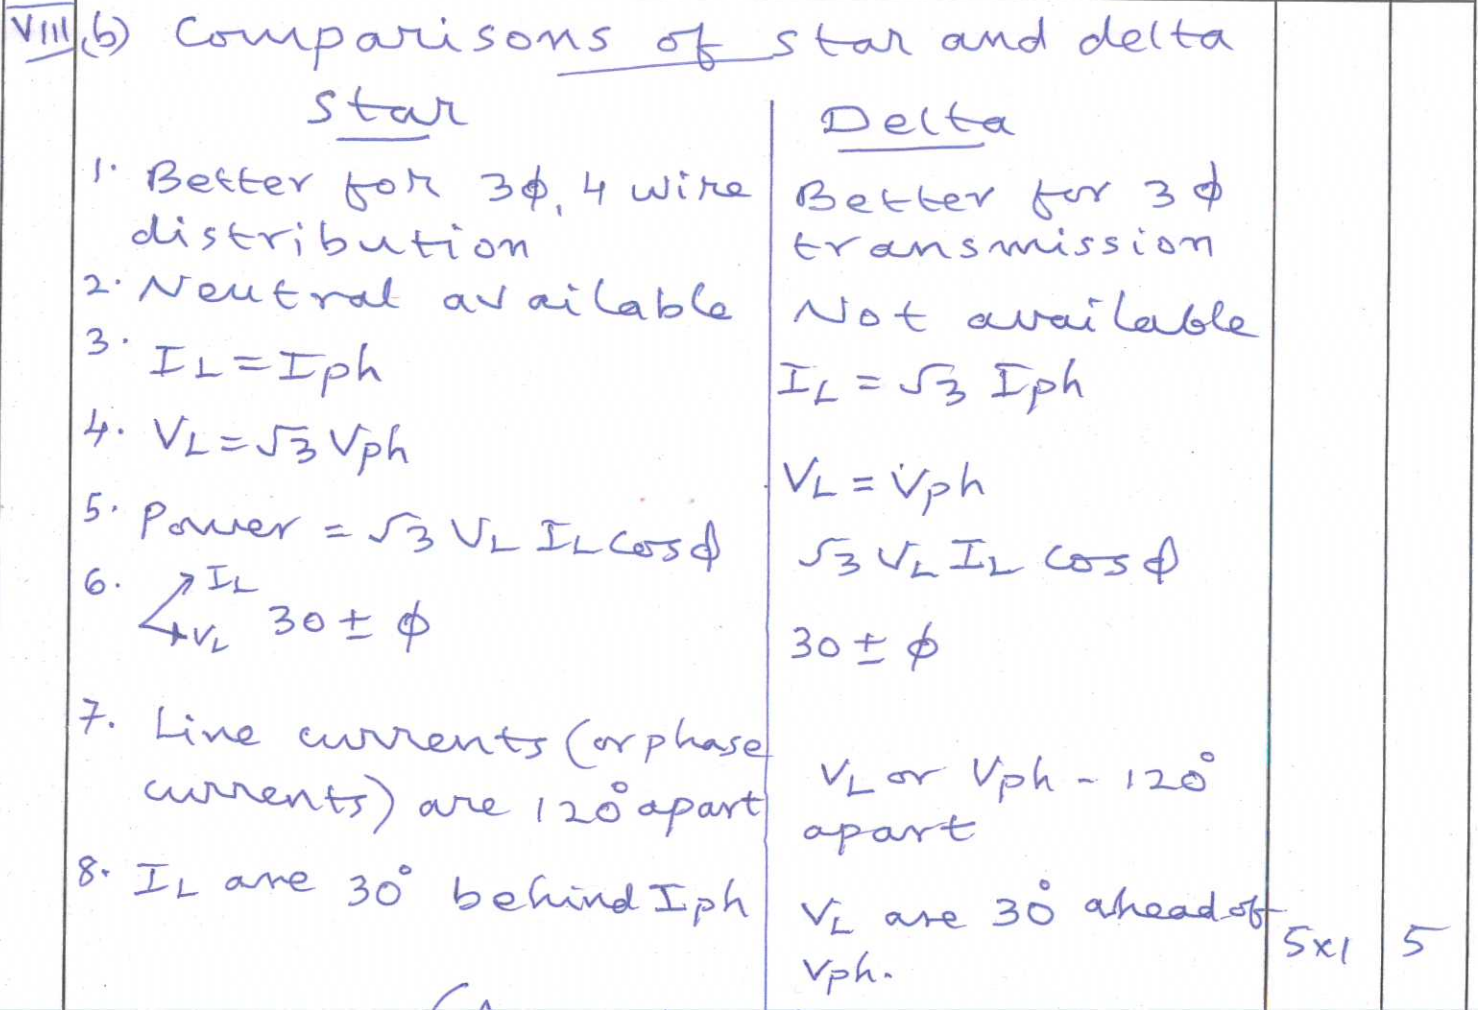 VIII b) Comparisons of star and delta
star
Delta
1. Better for 3ϕ, 4 wire
distribution
Better for 3ϕ
transmission
2. Neutral available
Not available
3. IL = Iph
IL = √3 Iph
4. VL = √3 Vph
VL = Vph
5. Power = √3 VL IL cosϕ
√3 VL IL cosϕ
6. IL
VL 30 ± ϕ
30 ± ϕ
7. Line currents (or phase
currents) are 120° apart
VL or Vph - 120°
apart
8. IL are 30° behind Iph
VL are 30° ahead of
Vph.
5x1 5